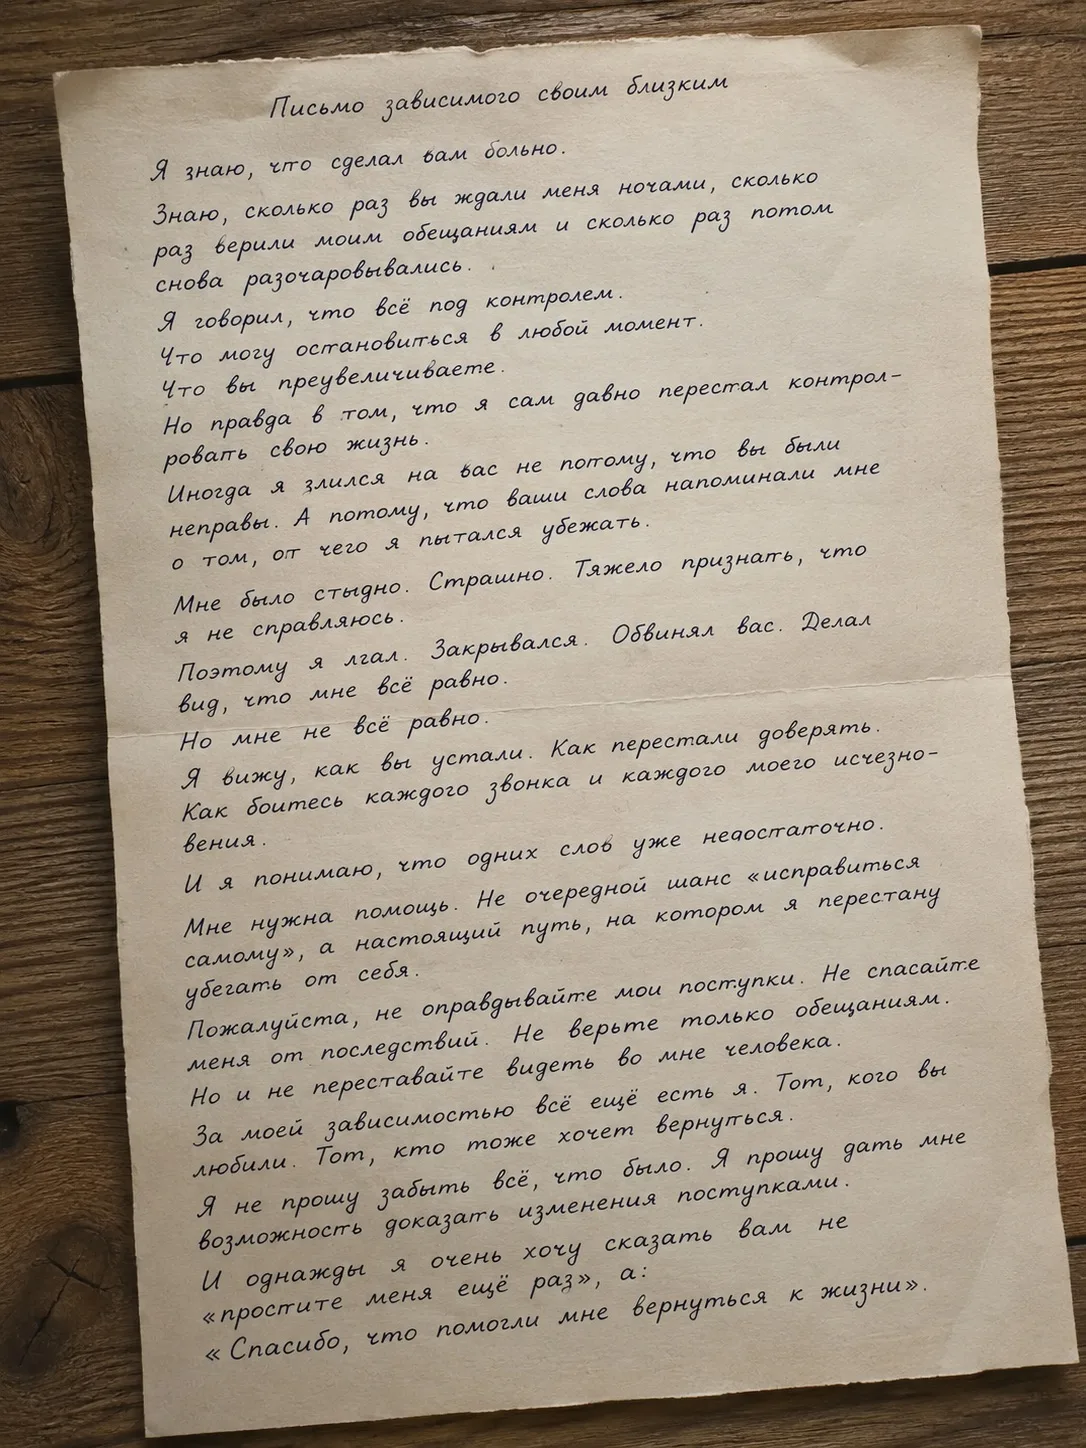 Письмо зависимого своим близким
Я знаю, что сделал вам больно.
Знаю, сколько раз вы ждали меня ночами, сколько
раз верили моим обещаниям и сколько раз потом
снова разочаровывались.
Я говорил, что всё под контролем.
Что могу остановиться в любой момент.
Что вы преувеличиваете.
Но правда в том, что я сам давно перестал контрол-
ровать свою жизнь.
Иногда я злился на вас не потому, что вы были
неправы. А потому, что ваши слова напоминали мне
о том, от чего я пытался убежать.
Мне было стыдно. Страшно. Тяжело признать, что
я не справляюсь.
Поэтому я лгал. Закрывался. Обвинял вас. Делал
вид, что мне всё равно.
Но мне не всё равно.
Я вижу, как вы устали. Как перестали доверять.
Как боитесь каждого звонка и каждого моего исчезно-
вения.
И я понимаю, что одних слов уже недостаточно.
Мне нужна помощь. Не очередной шанс «исправиться
самому», а настоящий путь, на котором я перестану
убегать от себя.
Пожалуйста, не оправдывайте мои поступки. Не спасайте
меня от последствий. Не верьте только обещаниям.
Но и не переставайте видеть во мне человека.
За моей зависимостью всё ещё есть я. Тот, кого вы
любили. Тот, кто тоже хочет вернуться.
Я не прошу забыть всё, что было. Я прошу дать мне
возможность доказать изменения поступками.
И однажды я очень хочу сказать вам не
«простите меня ещё раз», а:
«Спасибо, что помогли мне вернуться к жизни».